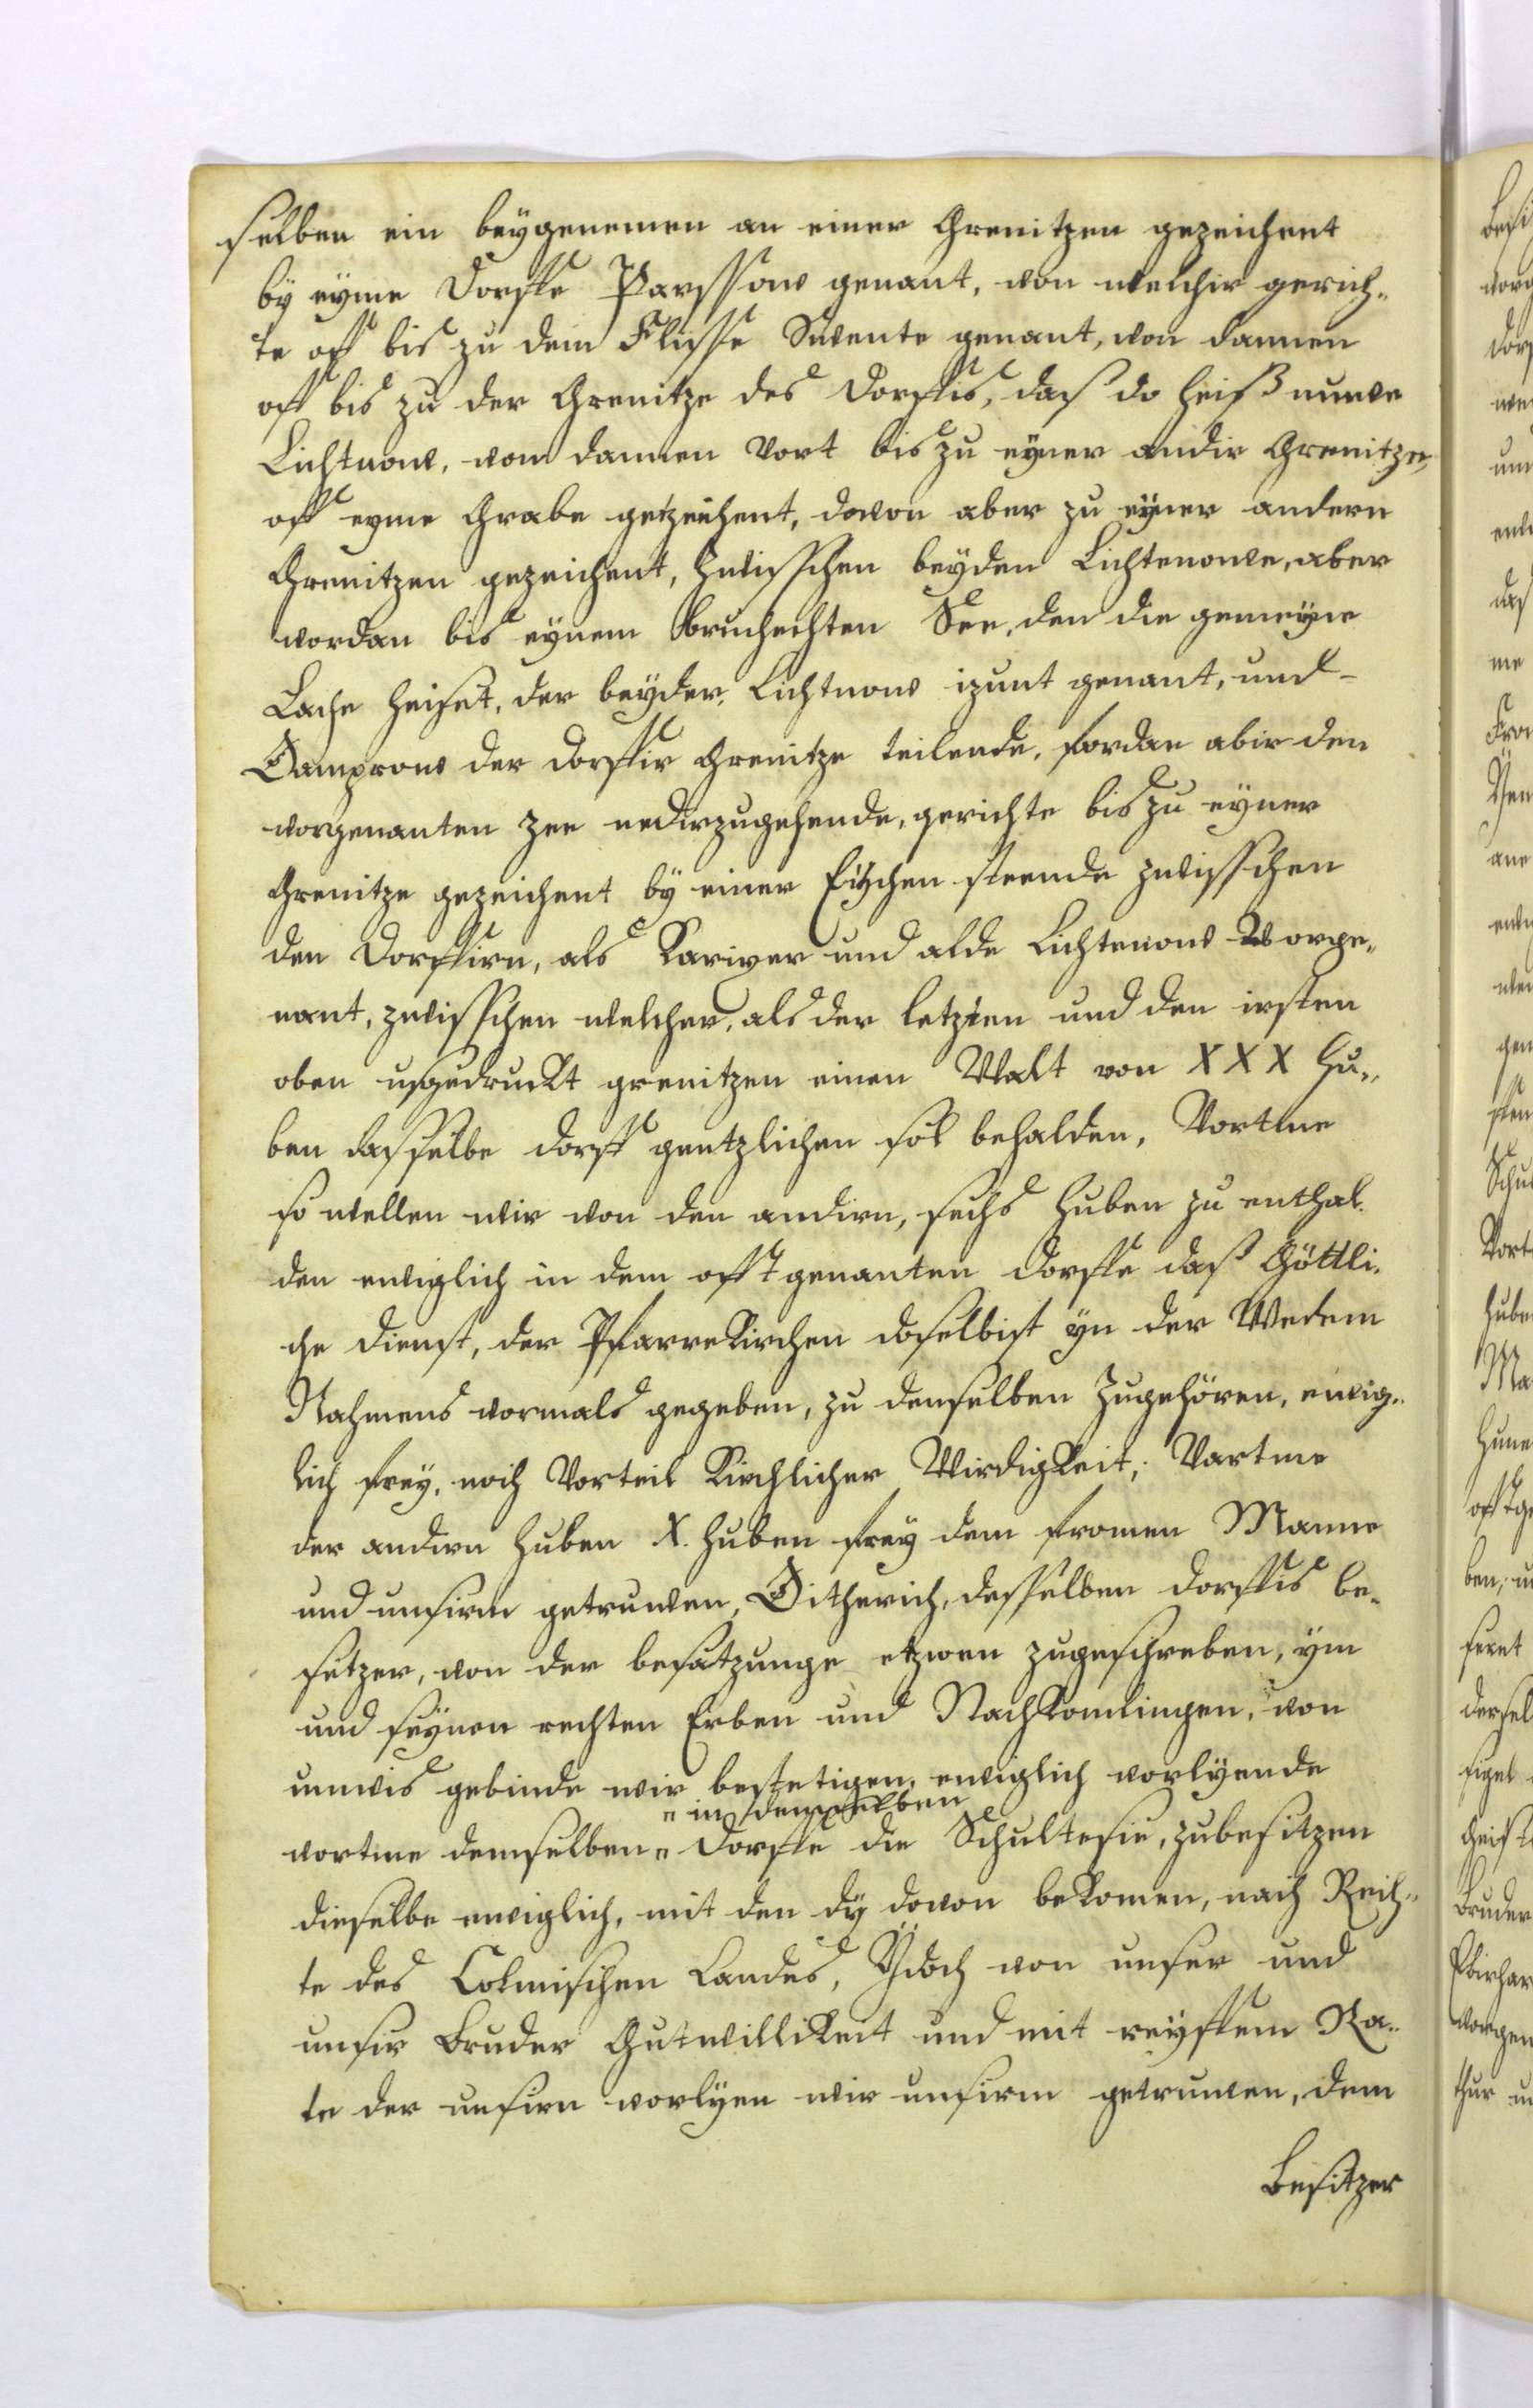 selben ein beygenemen an einer Grenitzen gezeichent
by eyme Dorffe Parssow genant, von welchir gerich„
te off bis zu dem Fliesse Swente genant, von dannen
off bis zu der Grenitze des Dorffis, das do heiß nuwe
Lichtnow, vom dannen vort bis zu eyner andir Grenitzen,
off eyme Grabe getzeichent, dovon aber zu eyner andern
Grenitzen gezeichent, zwisschen beyden Lichtenowe, aber
vordan bis eynem bruchechten See, den die gemeyne
Lache heiset, der beyder, Lichtnow izunt genant, und
Damprow der Dorffir Grenitze teilende, fordan abir den
vorgenanten zee nedirzugehende, gerichte bis zu eyner
Grenitze gezeichent by einer Eychen steende zwisschen
den Dorffirn, als Kariver und alde Lichtenow Vorge„
nant, zwisschen welcher, als der letzten und den irsten
oben usgedruckt grenitzen einen Walt von XXX Hu„
ben dasselbe dorff gentzlichen sol behalden, Vortme
so wellen wir von den andirn, sechs Huben zu enthal„
den ewiglich in dem offtgenanten Dorffe das Göttli„
che dienst, der Pfarrekirchen doselbist yn der Wedem
Nahmens vormals gegeben, zu denselben Zugehören, ewig„
lich frey, noch Vorteil Kirchlicher Wirdigkeit, Vartme
der andirn Huben X. Huben frey dem fromen Manne
und unsirm getruwen, Ditherich, desselben Dorffis be„
setzer, von der besatzunge etzwen zugeschreben, ym
und seynen rechten Erben und Nachkomlingen, von
unwis gebinde wir bestetigen, ewiglich vorlyende
„ in demselben
vortme demselben „ Dorffe die Schultesie, zubesitzen
dieselbe ewiglich, mit den dy dovon bekomen, nach Rech„
te des Colmischen Landes, Ydoch von unser und
unsir Bruder Gutwillikeit und mit reyffem Ra„
te der unsirn vorlyen wir unsirm getruwen, dem
Besitzer